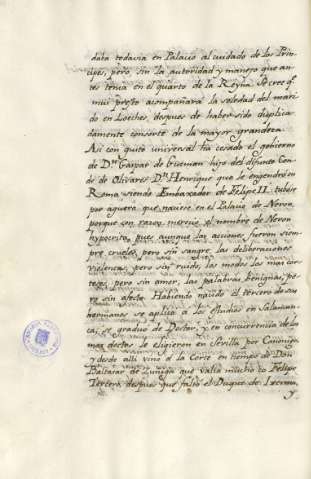 data todavia en Palacio al cuidado de los Prin-
cipes, pero sin la autoridad y manejo que an-
tes tenia en el quarto de la Reyna. Se cree qe
mui presto acompañará la soledad del mari-
do en Loeches, despues de haber sido
damente consorte de la mayor grandeza.
Asi con quito universal ha cesado el gobierno
de Dn Gaspar de Guzman hijo del difunto Con-
de de Olivares Dn Henrique que le engendró en
Roma siendo Embaxador de Felipe II. tubose
por aguero que naciese en el Palacio de Neron
porque con razon merecio el nombre de Neron
hypocrita, pues aunque las acciones fueron siem-
pre crueles, pero sin sangre, las deliberaciones
violentas, pero sin ruido, los modos los mas cor-
teses, pero sin amor, las palabras benignas, pe-
ro sin afecto. Habiendo nacido el tercero de sus
hermanos se aplicó a los Estudios en Salaman-
ca, se graduo de Doctor, y en concurrencia de los
mas doctos le eligieron en Sevilla por Canonigo
y desde alli vino à la Corte en tiempo de Don
Baltasar de Zuñiga que valia mucho co Felipe
Tercero, despues que faltó el Duque de Lerma,
y